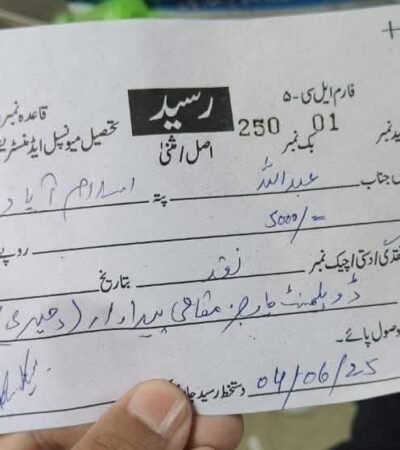 فارم ایل سی-۵ رسید قاعدہ نمبر
تحصیل میونسپل ایڈمنسٹریشن
اصل/مثنیٰ بک نمبر 250 01
جناب عبداللہ پتہ اسلام آباد
5000/= روپے
نقدی/دستی/چیک نمبر نقد بتاریخ
ڈویلپمنٹ چارجز مقامی پیداوار
وصول پائے۔
دستخط رسید 04/06/25